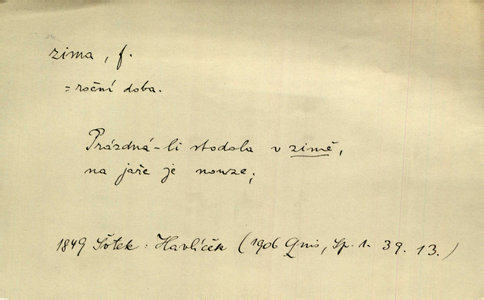 zima, f.
= roční doba.
Prázdná-li stodola v zimě,
na jaře je nouze;
1849 : Havlíček (1906 Quis, Sp. 1. 39. 13.)